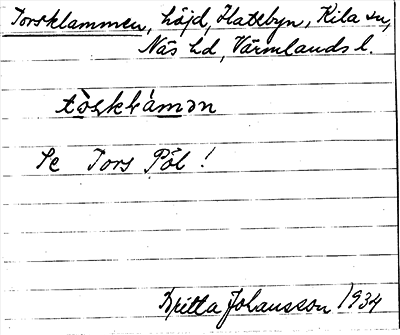 Torsklammen, höjd, Hatebyn, Kila sn,
Näs hd, Värmlands l.
Se Tors Pôl!
Britta Johansson 1934